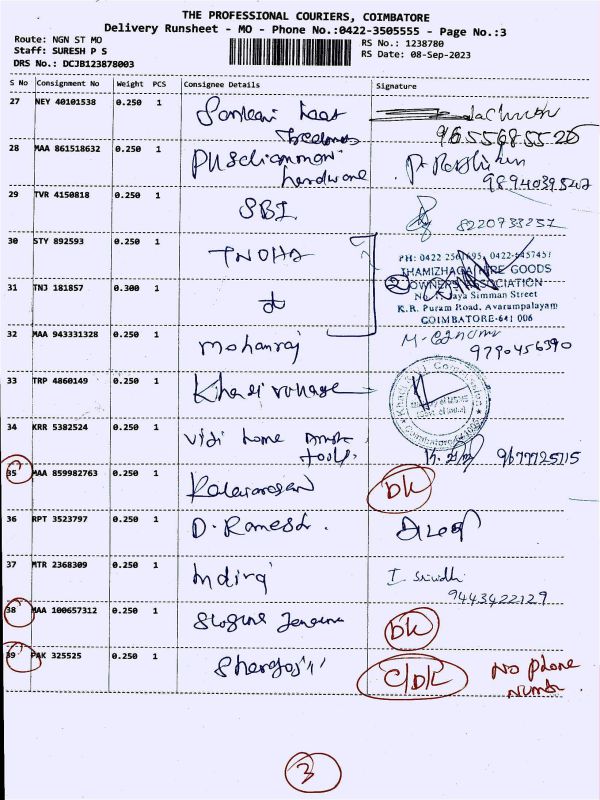 THE PROFESSIONAL COURIERS, COIMBATORE
Delivery Runsheet - MO - Phone No.:0422-3505555 - Page No.:3
Route: NGN ST MO
Staff: SURESH P S
DRS No.: DCJB123878003
RS No.: 1238780
RS Date: 08-Sep-2023
S No Consignment No Weight PCS Consignee Details Signature
27 NEY 40101538 0.250 1
9655685526
28 MAA 861518632 0.250 1 hardware
29 TVR 4150818 0.250 1 SBI 8220933257
30 STY 892593 0.250 1 TNOHA
PH: 0422 2561695, 0422-6457451
THAMIZHAGA HIRE GOODS
OWNERS ASSOCIATION
Jaya Simman Street
K.R. Puram Road, Avarampalayam
COIMBATORE-641 006
31 TNJ 181857 0.300 1
32 MAA 943331328 0.250 1 Mohanraj
9790456390
33 TRP 4860149 0.250 1
34 KRR 5382524 0.250 1 Vidi home
tools.
9677725715
35 MAA 859982763 0.250 1 Kalaiarasan DK
36 RPT 3523797 0.250 1 D. Ramesh.
37 MTR 2368309 0.250 1 Indiraj
9443422129
38 MAA 100657312 0.250 1 DK
39 PAK 325525 0.250 1 C/DK No phone
number.
3